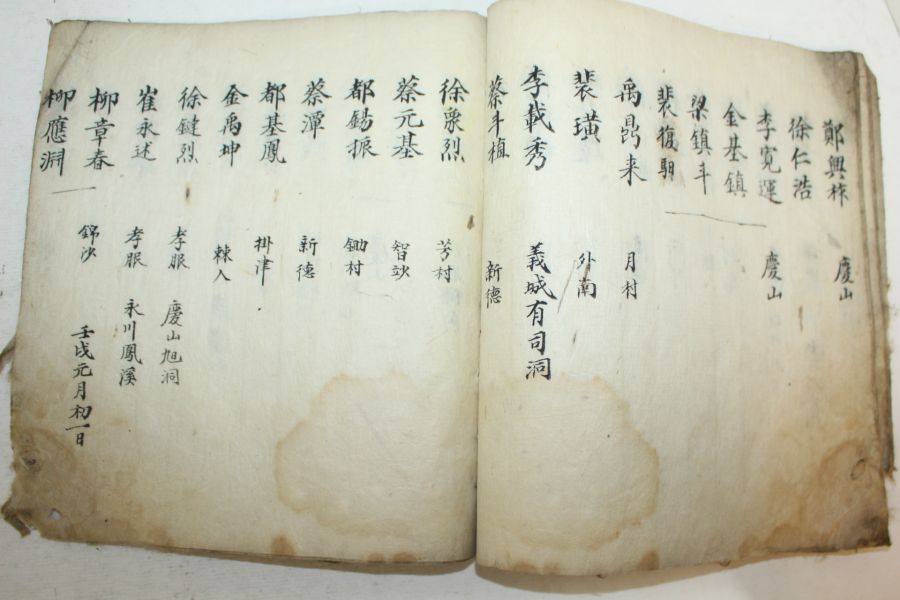 鄭興林 慶山
徐仁浩
李寬運 慶山
金基鎮
梁鎮斗
裴復駉
禹昂来 月村
裴璜 外南
李載秀 義城有司洞
蔡斗植 新德
徐象烈 芳村
蔡元基 智妙
都錫振 鋤村
蔡潭 新德
都基鳳 掛津
金禹坤 棘人
徐鍵烈 孝服 慶山旭洞
崔永述 孝服 永川鳳溪
柳章春 錦沙
柳應淵 壬戌元月初一日